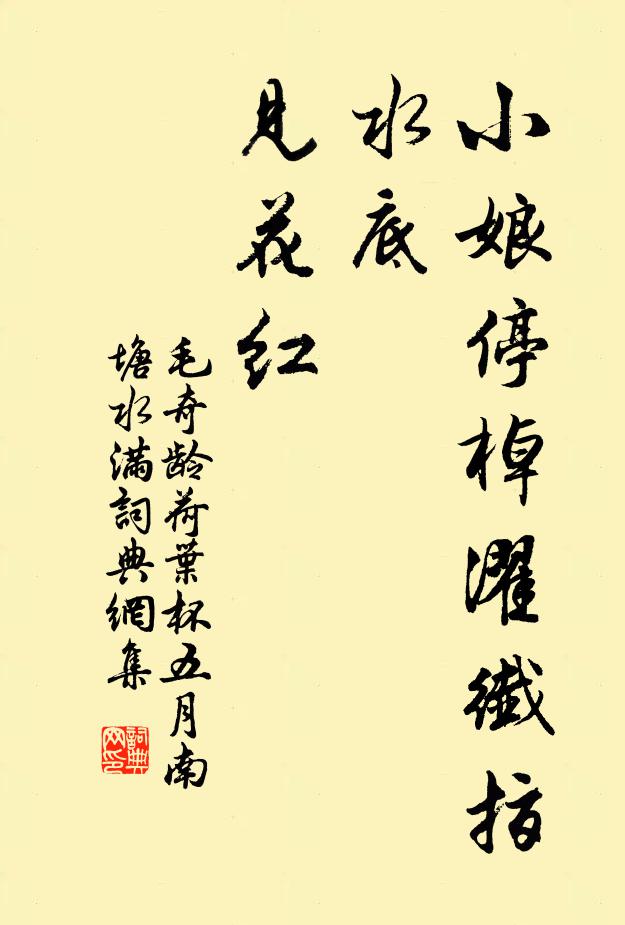 小娘停棹濯纖指
水底
見花红
毛奇龄荷葉杯五月南
塘水满詞典網集
詞典
网印